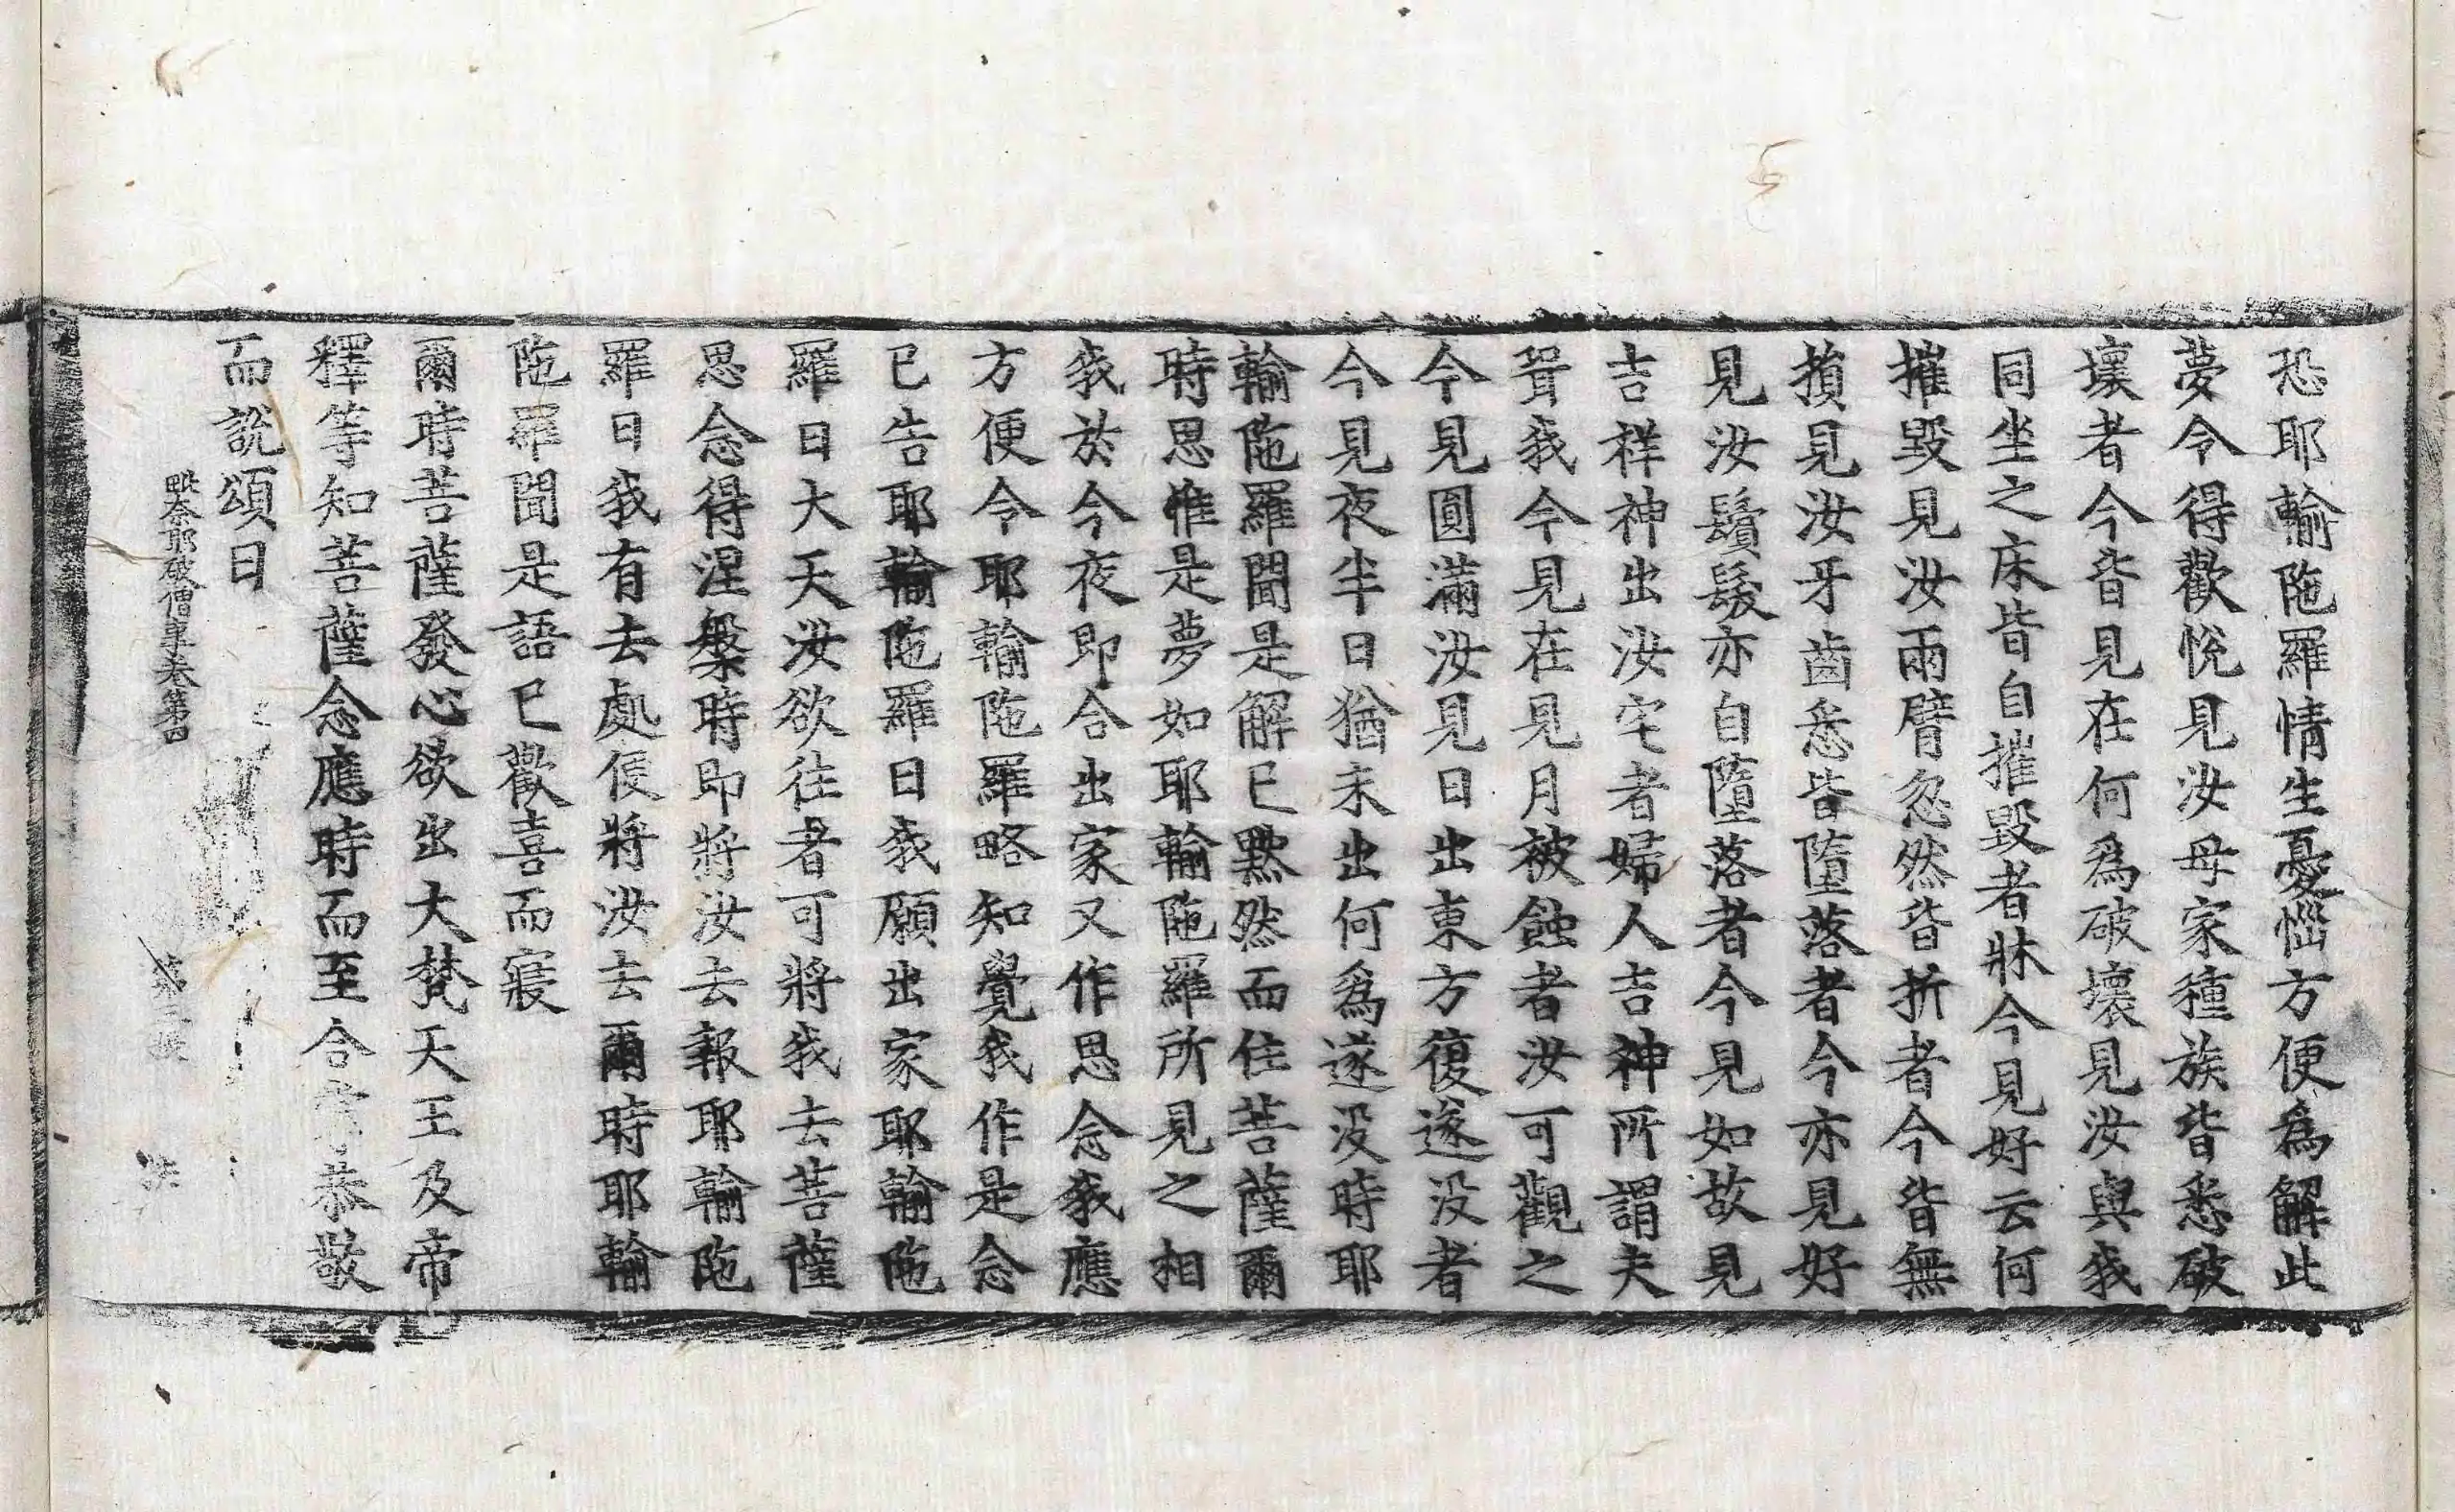 恐耶輸陁羅情生憂惱方便爲解此
夢令得歡悅見汝母家種族皆悉破
壞者今皆見在何爲破壞見汝與我
同坐之床皆自摧毀者牀今見好云何
摧毀見汝兩臂忽然皆折者今皆無
損見汝牙齒悉皆墮落者今亦見好
見汝鬚髮亦自墮落者今見如故見
吉祥神出汝宅者婦人吉神所謂夫
壻我今見在見月被蝕者汝可觀之
今見圓滿汝見日出東方復遂没者
今見夜半日猶未出何爲遂没時耶
輸陁羅聞是解已黙然而住菩薩爾
時思惟是夢如耶輸陁羅所見之相
我於今夜即合出家又作思念我應
方便令耶輸陁羅略知覺我作是念
已告耶輸陁羅曰我願出家耶輸陁
羅曰大天汝欲往者可將我去菩薩
思念得涅槃時即將汝去報耶輸陁
羅曰我有去處便將汝去爾時耶輸
陁羅聞是語已歡喜而寢
爾時菩薩發心欲出大梵天王及帝
釋等知菩薩念應時而至合恭敬
而說頌曰
毗奈耶破僧事卷第四
第三張